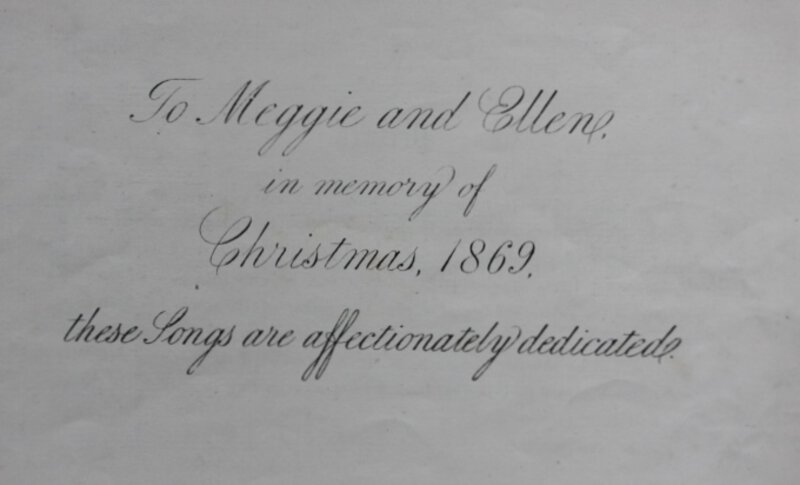 To Meggie and Ellen.
in memory of
Christmas, 1869.
these Songs are affectionately dedicated.